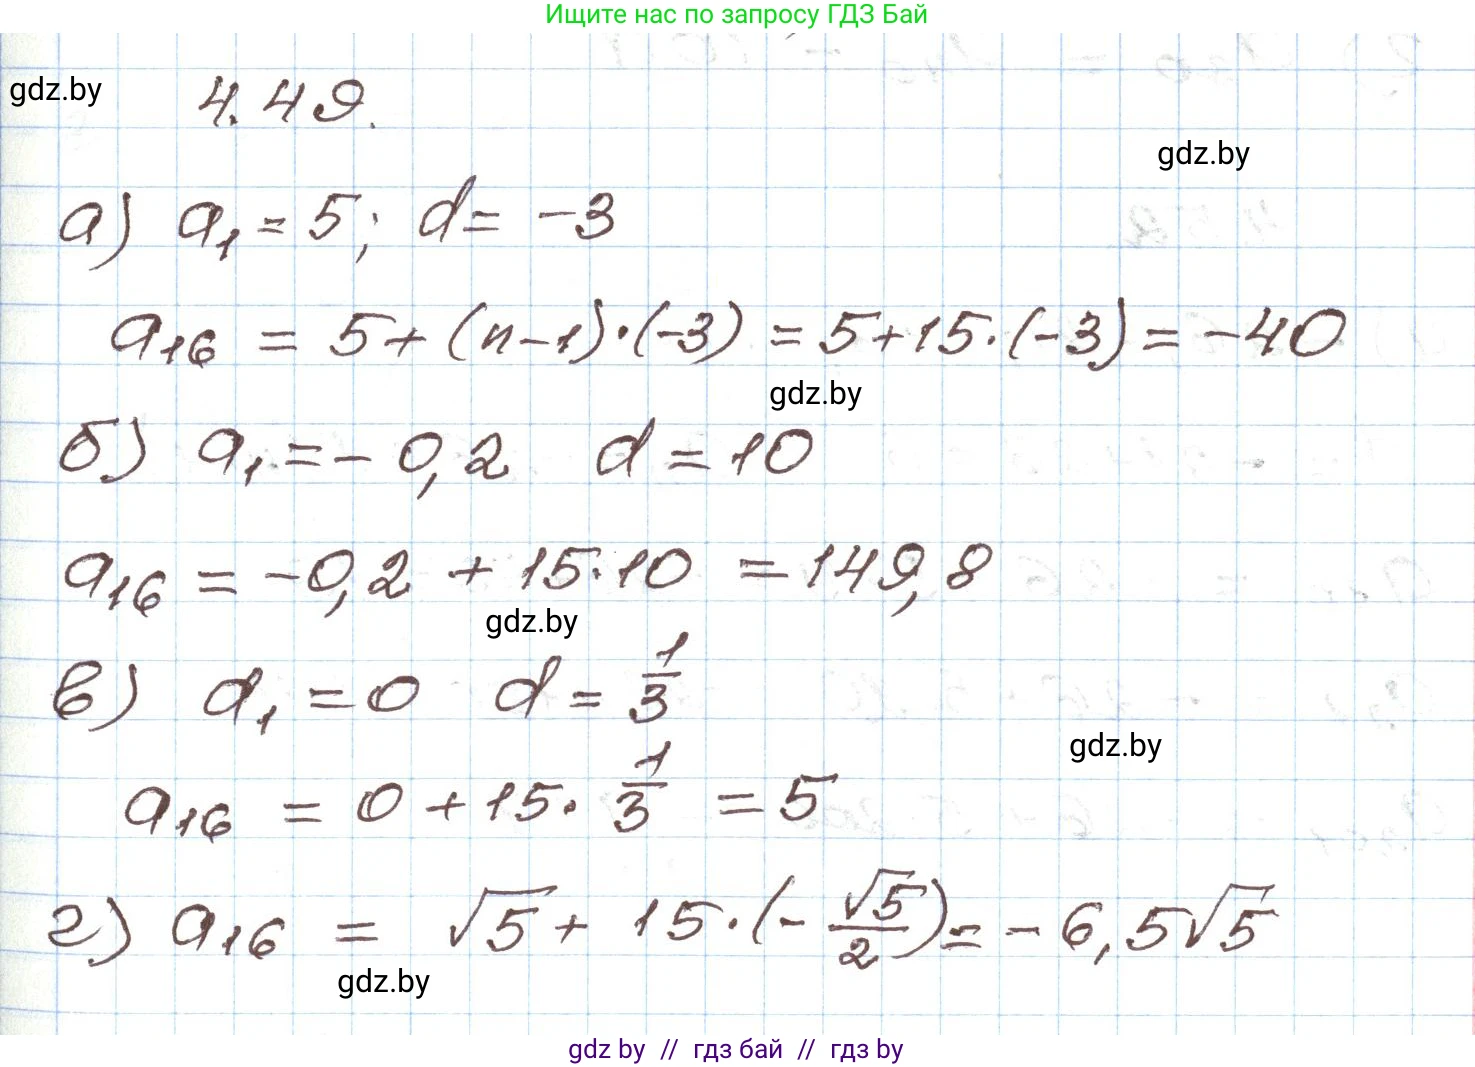 Ищите нас по запросу ГДЗ Бай
gdz.by
4.49.
gdz.by
а) a₁ = 5; d = -3
a₁₆ = 5 + (n-1)·(-3) = 5+15·(-3) = -40
gdz.by
б) a₁ = -0,2 d = 10
a₁₆ = -0,2 + 15·10 = 149,8
gdz.by
в) a₁ = 0 d = 1/3
gdz.by
a₁₆ = 0 + 15· 1/3 = 5
г) a₁₆ = √5 + 15·(-√5/2) = -6,5√5
gdz.by
gdz by // гдз бай // гдз by